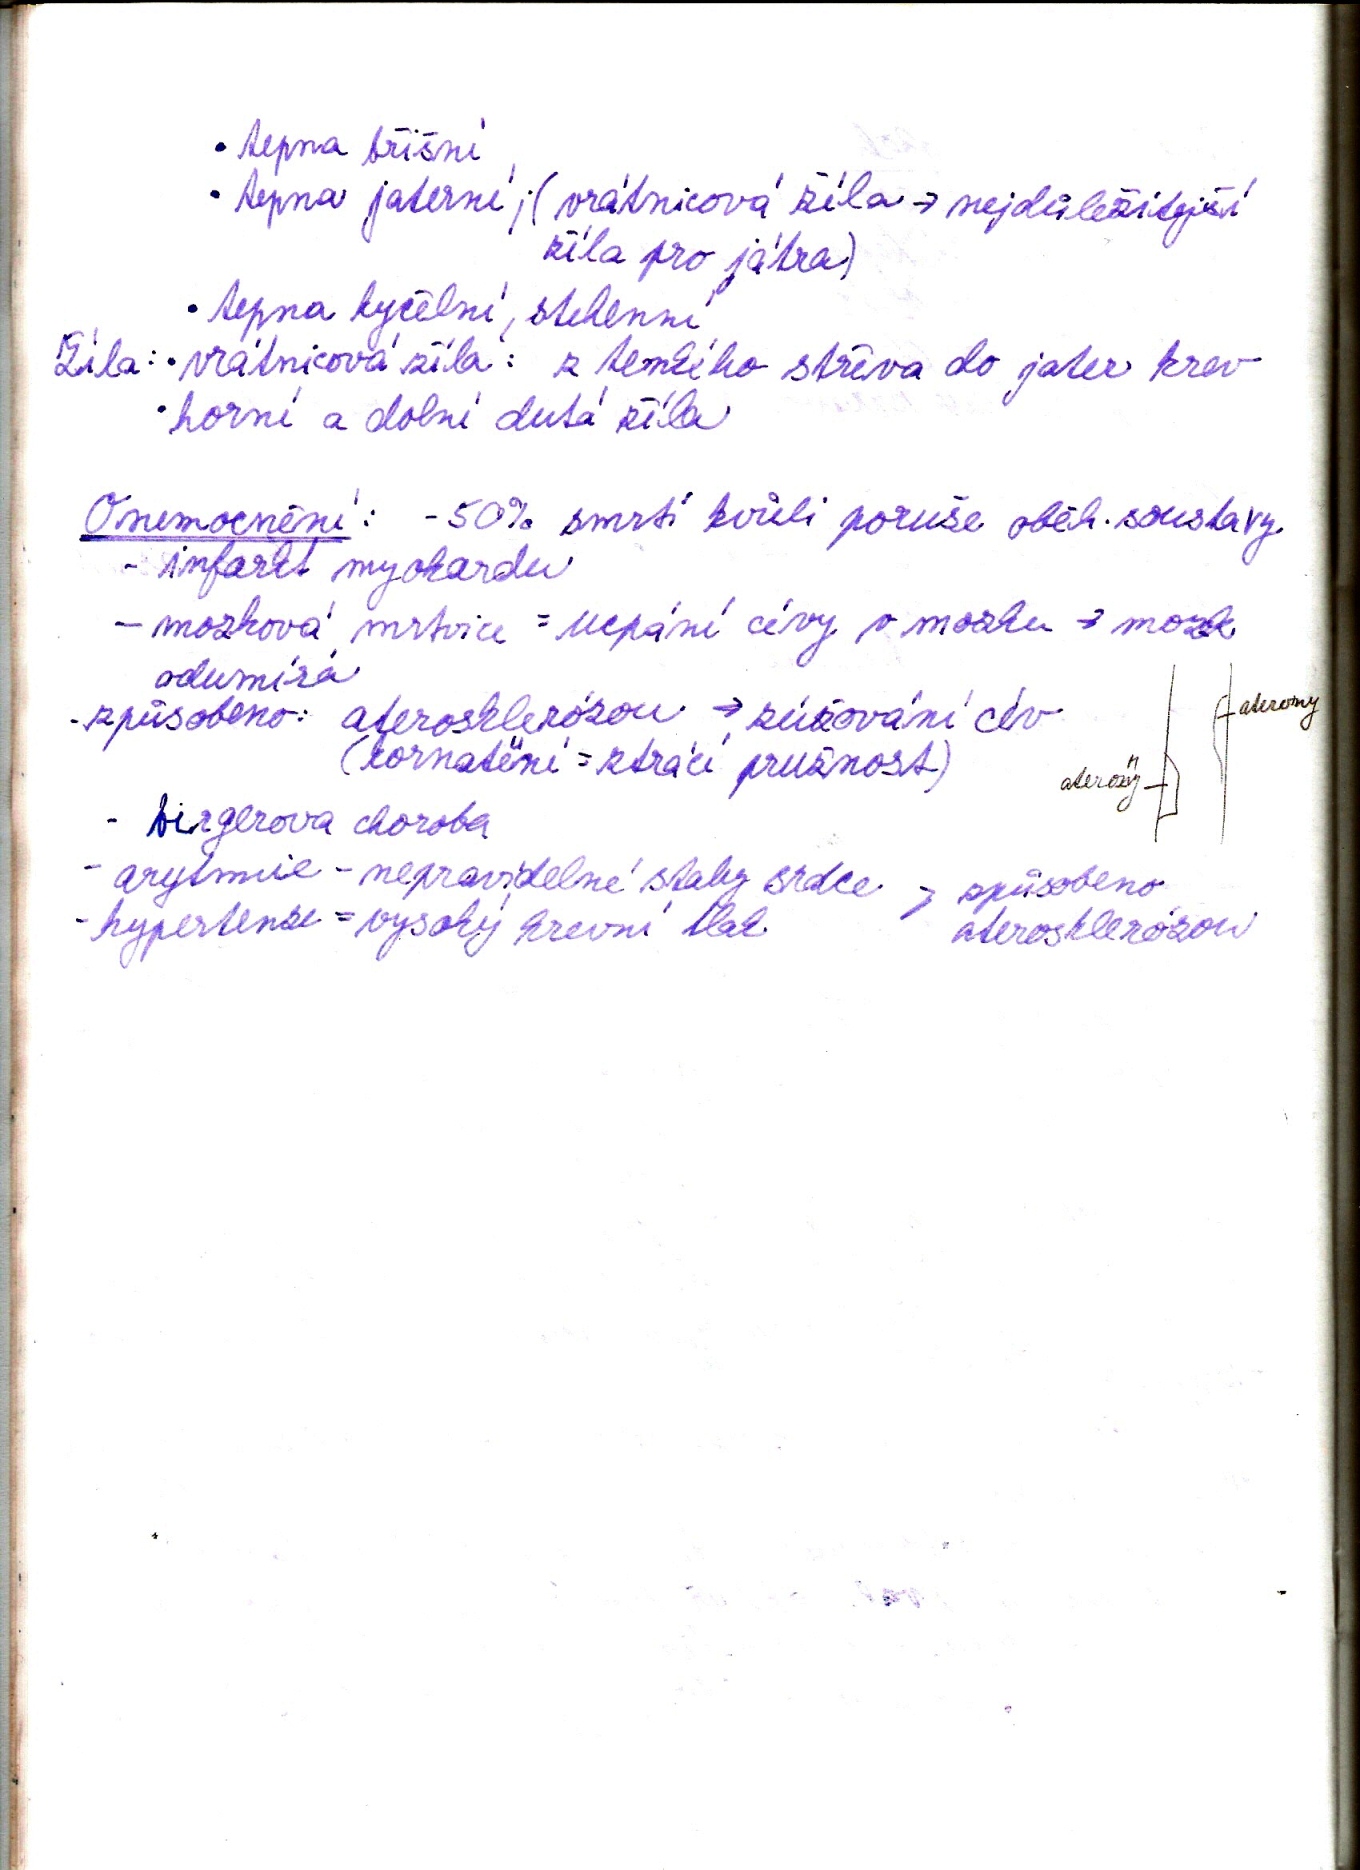 • tepna břišní
• tepna jaterní; (vrátnicová žíla → nejdůležitější
žíla pro játra)
• tepna kyčelní, stehenní
Žíla: • vrátnicová žíla: z tenkého střeva do jater krev
• horní a dolní dutá žíla
Onemocnění: - 50% smrtí kvůli poruše oběh. soustavy
- infarkt myokardu
- mozková mrtvice = ucpání cévy v mozku → mozek
odumírá
- způsobeno: aterosklerózou → zúžování cév
(kornatění = ztrácí pružnost)
ateromy
- birgerova choroba
- arytmie - nepravidelné stahy srdce , způsobeno
- hypertenze = vysoký krevní tlak aterosklerózou